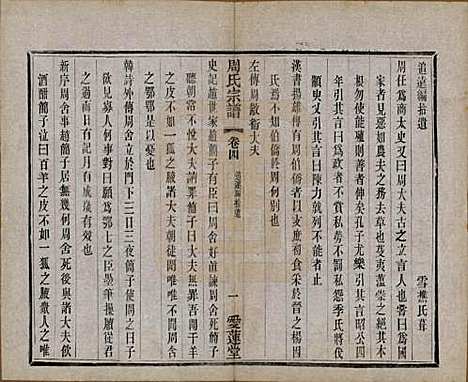 追遠編拾遺
雪樵氏葺
周任爲商太史周大夫古之立言人也爲國
者見惡如農夫之務去草也芟夷薀崇之絕其本
根勿使能殖則善者信矣孔子尤樂引其言昭公四
年引其言曰爲政者不賞私勞不罰私怨季氏將伐
顓臾引其言曰陳力就列不能者止
漢書揚雄傳有周伯僑者以支庶初食采於晉之楊因
氏焉不知伯僑周何別也
左傳周歂衞大夫
周氏宗譜
卷四
追遠編拾遺
一
愛蓮堂
史記趙世家趙簡子有臣曰周舍好直諫周舍死簡子
每聽朝常不悅大夫請罪簡子曰大夫無罪吾聞千羊
之皮不如一狐之腋諸大夫朝徒聞唯唯不聞周舍
之鄂鄂是以憂也
韓詩外傳周舍立於門下三日三夜簡子使問之曰子
欲見寡人何事周舍對曰願爲鄂鄂之臣墨筆操牘從君
之過而日有記月有成歲有效也
新序周舍事趙簡子居無幾何周舍死後與諸大夫飮
酒酣簡子泣曰百羊之皮不如一狐之腋衆人之唯唯